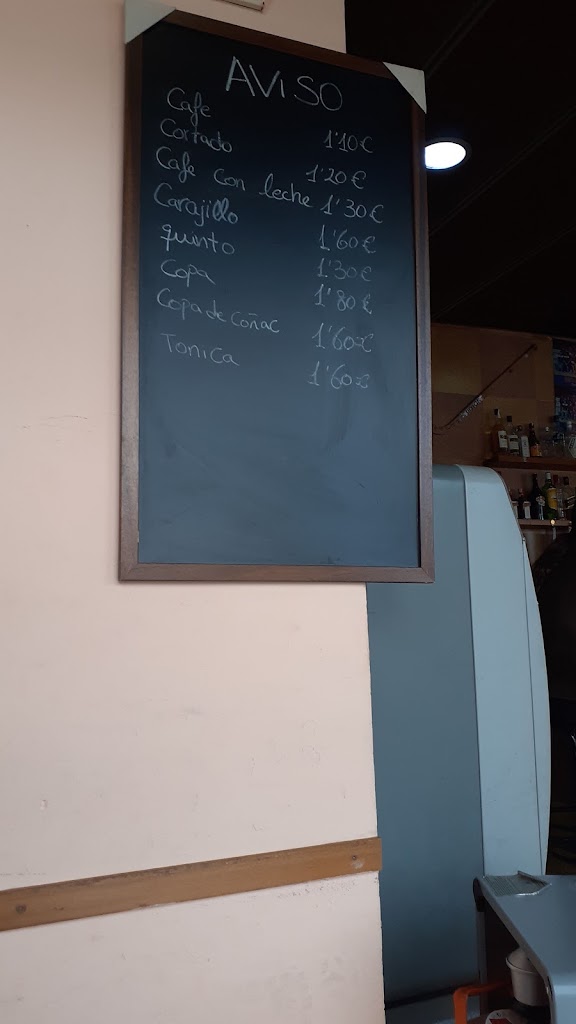 AViSO
Cafe 1'10€
Cortado 1'20€
Cafe con leche 1'30€
Carajillo 1'60€
quinto 1'30€
Copa 1'80€
Copa de coñac 1'60€
Tonica 1'60€